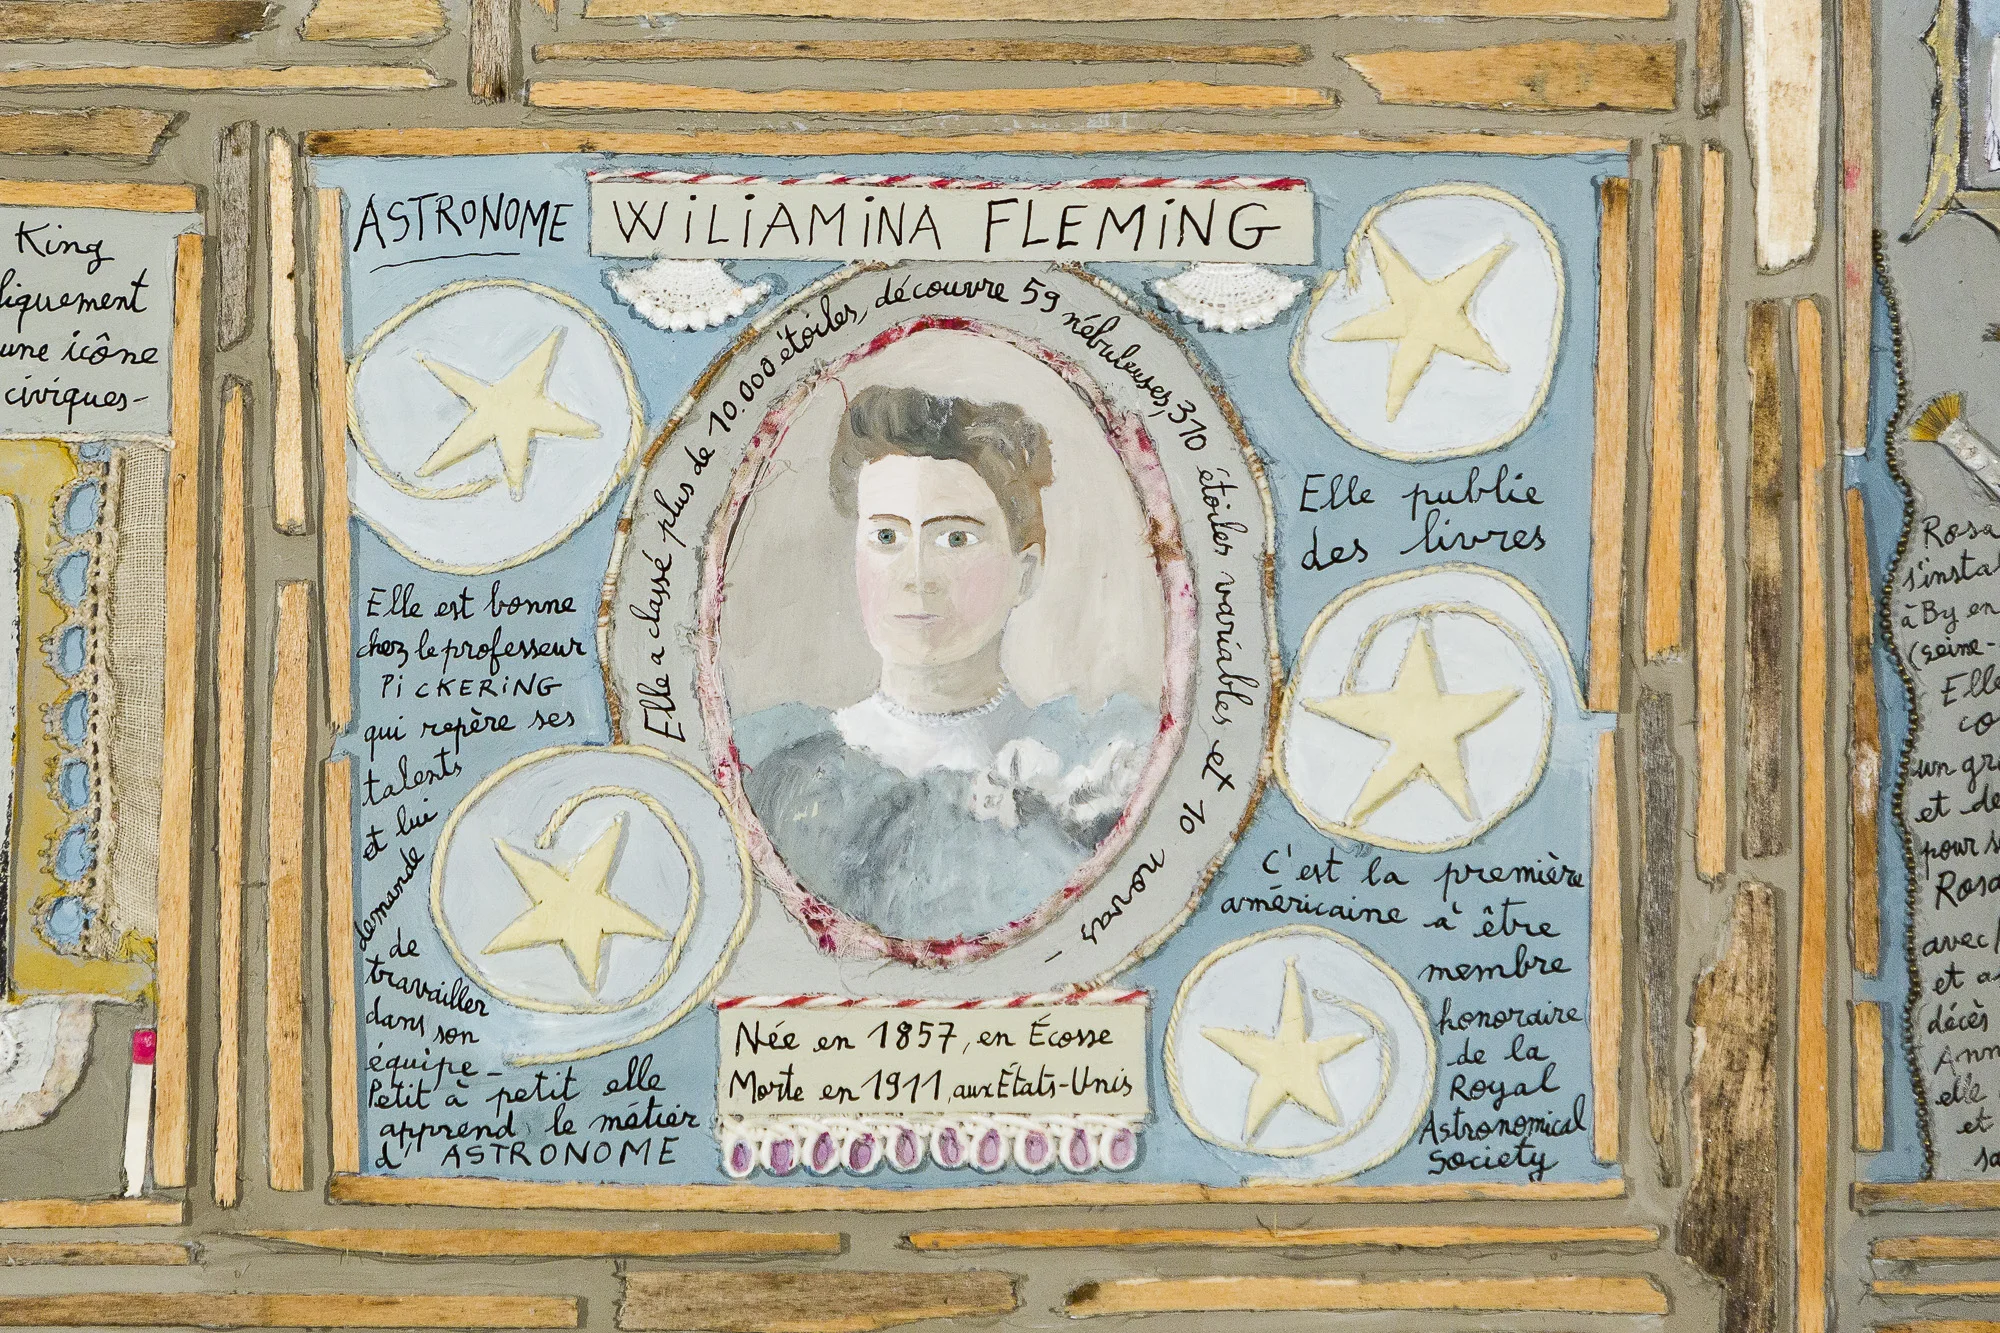 King
une icône
civiques-
ASTRONOME
WiLiAMiNA FLEMiNG
Elle a classé plus de 10.000 étoiles, découvre 59 nébuleuses, 310 étoiles variables et 10 novas -
Elle est bonne
chez le professeur
PiCKERiNG
qui repère ses
talents
et lui
demande
de
travailler
dans son
équipe_
Petit à petit elle
apprend le métier
d'ASTRONOME
Née en 1857, en Écosse
Morte en 1911, aux États-Unis
Elle publie
des livres
C'est la première
américaine à être
membre
honoraire
de la
Royal
Astronomical
Society
Rosa
à By en
(seine-
Elle
co
un gr
et de
pour
Rosa
avec
et a
décès
Ann
elle
et
sa